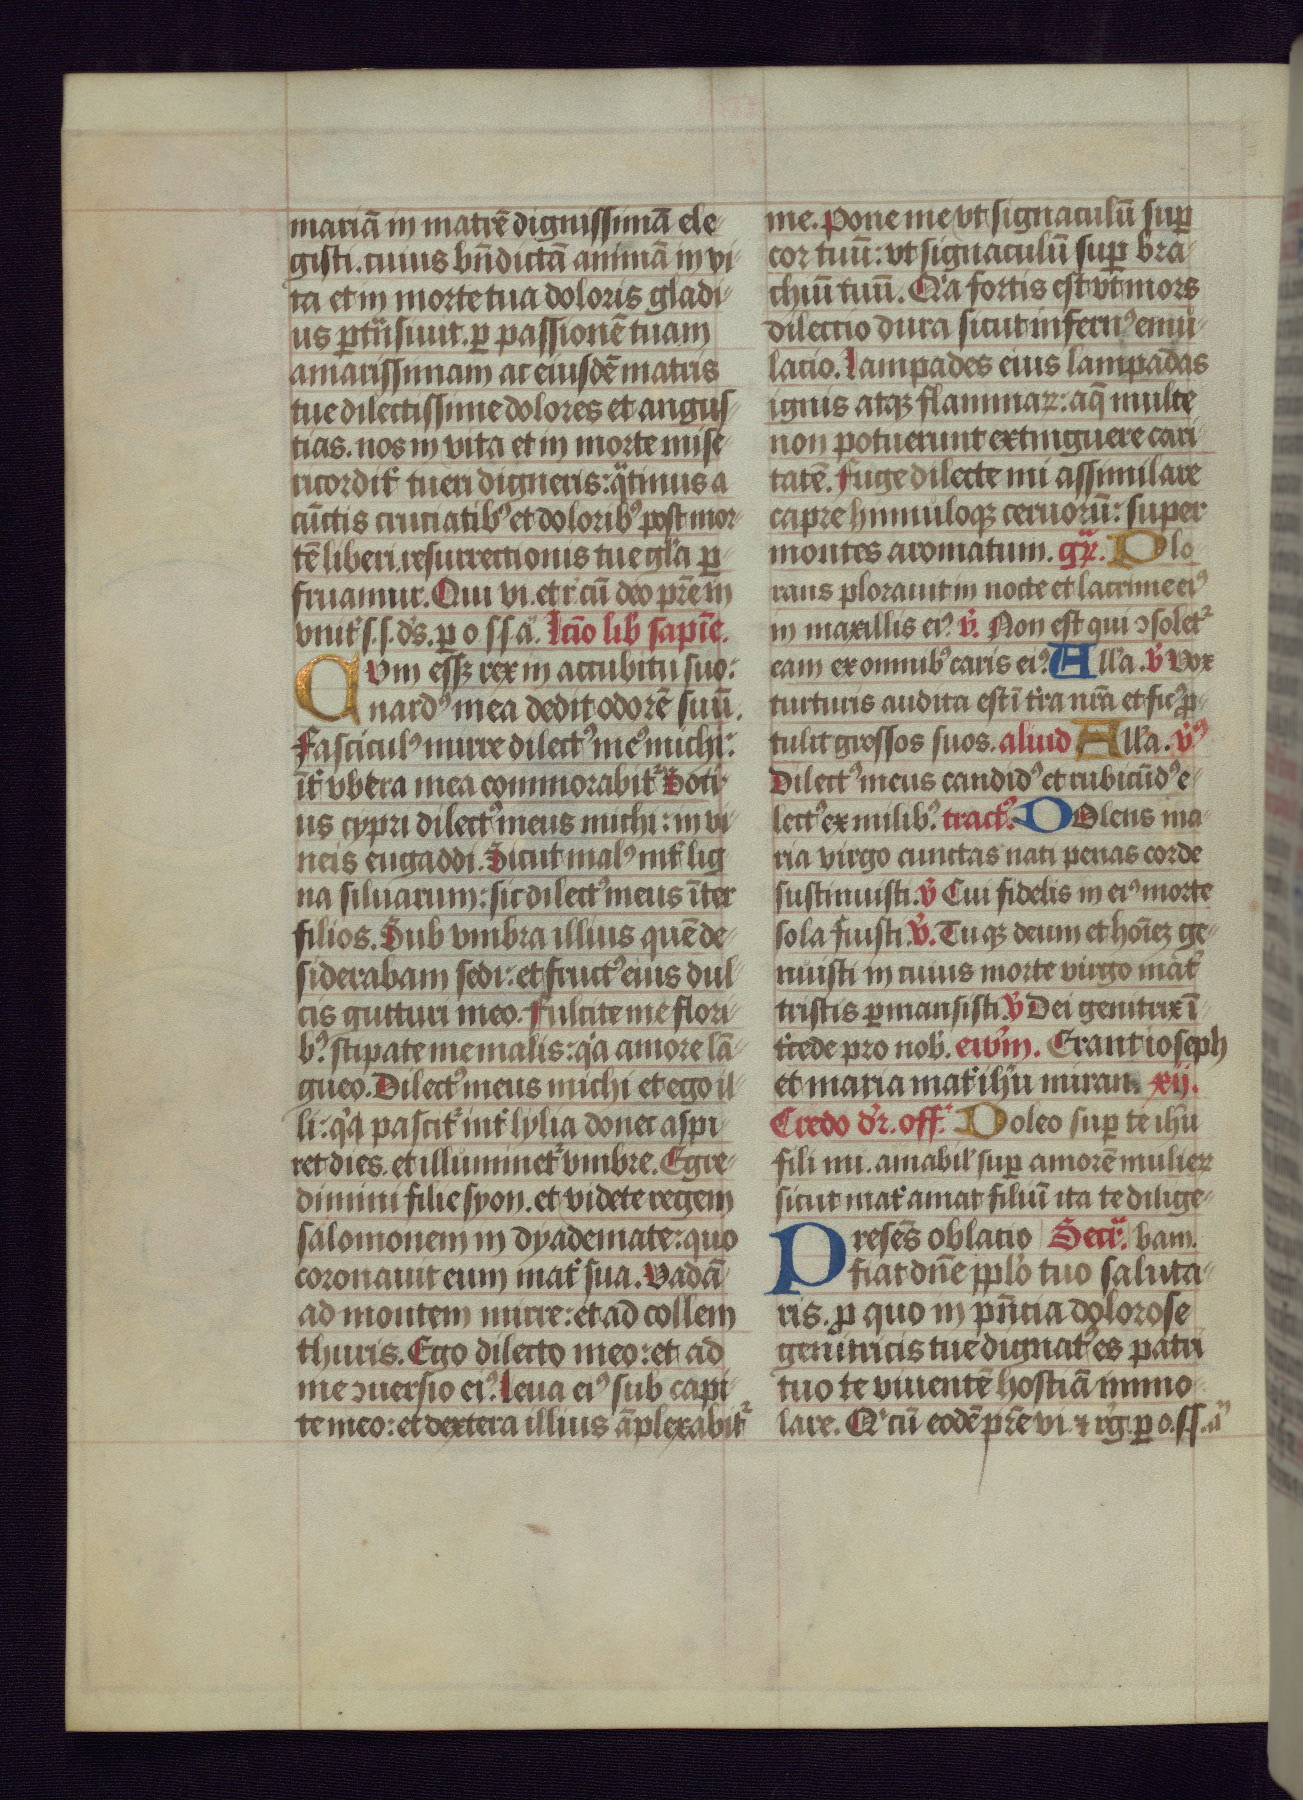 mariā in matrē dignissimā ele-
gisti. cuius bn̄dictā animā in vi-
ta et in morte tua doloris gladi-
us ꝑtūsiuit. ꝑ passionē tuam
amarissimam ac eiusdē matris
tue dilectissime dolores et angus-
tias. nos in vita et in morte mise-
ricordit̾ tueri digneris: qͣtinus a
cūctis cruciatibꝰ et doloribꝰ post mor-
tē liberi. resurrectionis tue gl̾a ꝑ-
fruamur. Qui vi. et r̾ cū deo pr̄e in
vnit̾ s. s. d̾s. ꝑ o. s. s. a. lc̄io lib̾ sapīe.
Cvm essꝫ rex in accubitu suo:
nardꝰ mea dedit odorē suū.
Fasciculꝰ mirre dilectꝰ meꝰ michi:
īt̾ vbera mea commorabit̾ Botr-
us cypri dilectꝰ meus michi: in vi-
neis engaddi. Sicut malꝰ int̾ lig-
na siluarum: sic dilectꝰ meus īter
filios. Sub vmbra illius quē de-
siderabam sedi: et fructꝰ eius dul-
cis gutturi meo. Fulcite me flori-
bꝰ. stipate me malis: qͣa amore lā-
gueo. Dilectꝰ meus michi et ego il-
li: qͥ pascit̾ int̾ lylia donec aspi-
ret dies. et illuminet̾ vmbre. Egre-
dimini filie syon. et videte regem
salomonem in dyademate: quo
coronauit eum mat̾ sua. Vadā
ad montem mirre: et ad collem
thuris. Ego dilecto meo: et ad
me ↄuersio eiꝰ. Leua eiꝰ sub capi-
te meo: et dextera illius āplexabit̾
me. Pone me vt signaculū suꝑ
cor tuū: vt signaculū suꝑ bra-
chiū tuū. Qͥa fortis est vt mors
dilectio dura sicut infernꝰ emu-
lacio. Lampades eius lampadas
ignis atqꝫ flammaꝝ: aq̄ multe
non potuerunt extinguere cari-
tatē. Fuge dilecte mi assimilare
capre hinnuloqꝫ ceruorū: super
montes aromatum. gͬ. Plo-
rans plorauit in nocte et lacrime eiꝰ
in maxillis eiꝰ. v̾. Non est qui ↄsolet̾
eam ex omnibꝰ caris eiꝰ. All̾a. v̾ Vox
turturis audita est ī tr̄a nr̄a et ficꝰ ꝓ-
tulit grossos suos. aliud All̾a. v̾ꝰ
Dilectꝰ meus candidꝰ et rubicūdꝰ e-
lectꝰ ex milibꝰ. tractꝰ. DOlens ma-
ria virgo cunctas nati penas corde
sustinuisti. v̾ Cui fidelis in eiꝰ morte
sola fuisti. v̾. Tu qꝫ deum et hoīeꝫ ge-
nuisti in cuius morte virgo mat̾
tristis ꝑmansisti. v̾ Dei genitrix ī-
tcede pro nob̾. ewm̾. Erant ioseph
et maria mat̾ ih̄u miran. xij.
Credo dr̄. off̾. Doleo suꝑ te ih̄u
fili mi. amabil̾ suꝑ amorē mulieꝝ
sicut mat̾ amat filiū ita te dilige-
Presēs oblatio Secr̾. bam.
fiat dn̄e ppl̾o tuo saluta-
ris. ꝓ quo in pn̄cia dolorose
genitricis tue dignatꝰ es patri
tuo te viuentē hostiā immo-
lare. Qͥ cū eodē pr̄e vi. ⁊ rg̾. ꝑ o. s. s. a